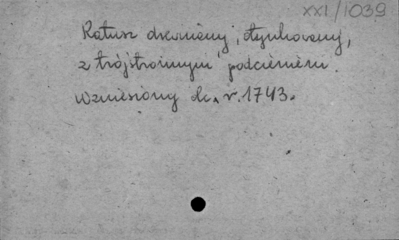 XXI/1039
Ratusz drewniany, otynkowany,
z trójstronnym podcieniem.
Wzniesiony ok. r. 1743.